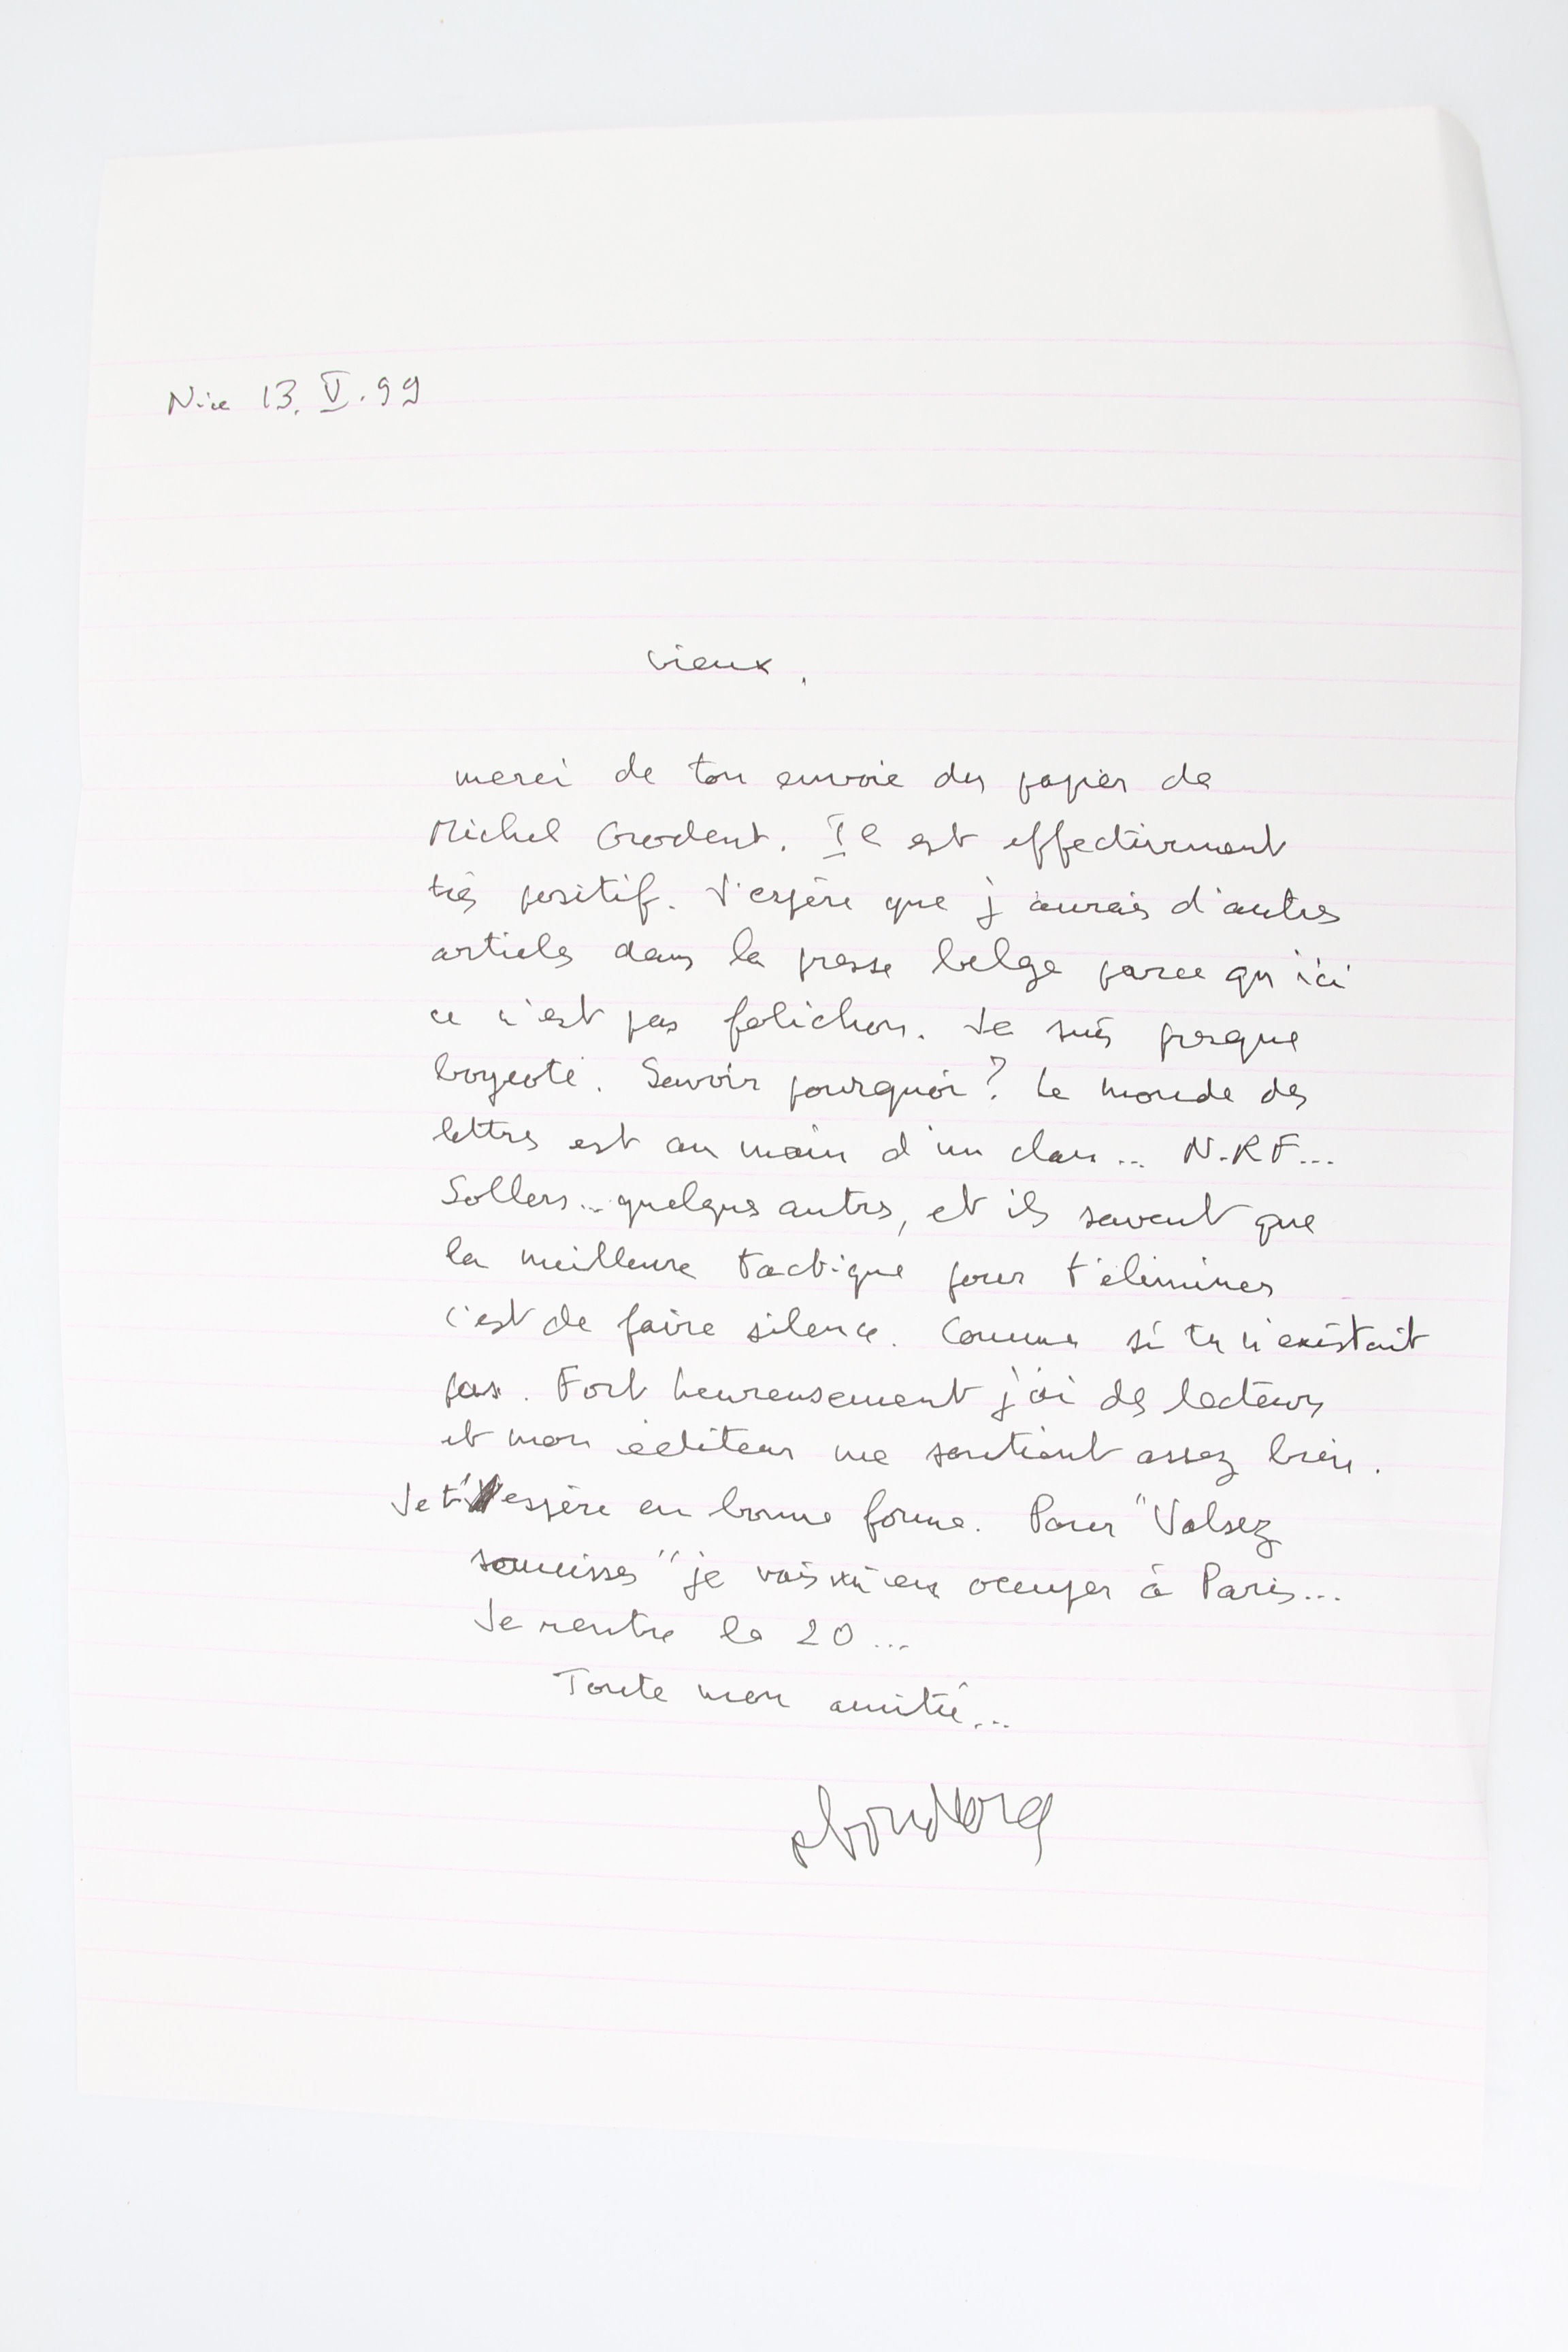 Nice 13. V. 99
vieux,
merci de ton envoie du papier de
Michel Grodent. Il est effectivement
très positif. J'espère que j'aurais d'autres
articles dans la presse belge parce qu'ici
ce n'est pas folichon. Je suis presque
boycoté. Savoir pourquoi? Le monde des
lettres est au main d'un clan... N.RF...
Sollers... quelques autres, et ils savent que
la meilleure tactique pour t'éliminer
c'est de faire silence. Comme si tu n'existait
pas. Fort heureusement j'ai des lecteurs
et mon éditeur me soutient assez bien.
Je t'espère en bonne forme. Pour "Valsez
saucisses" je vais m'en occuper à Paris...
Je rentre le 20...
Toute mon amitié...